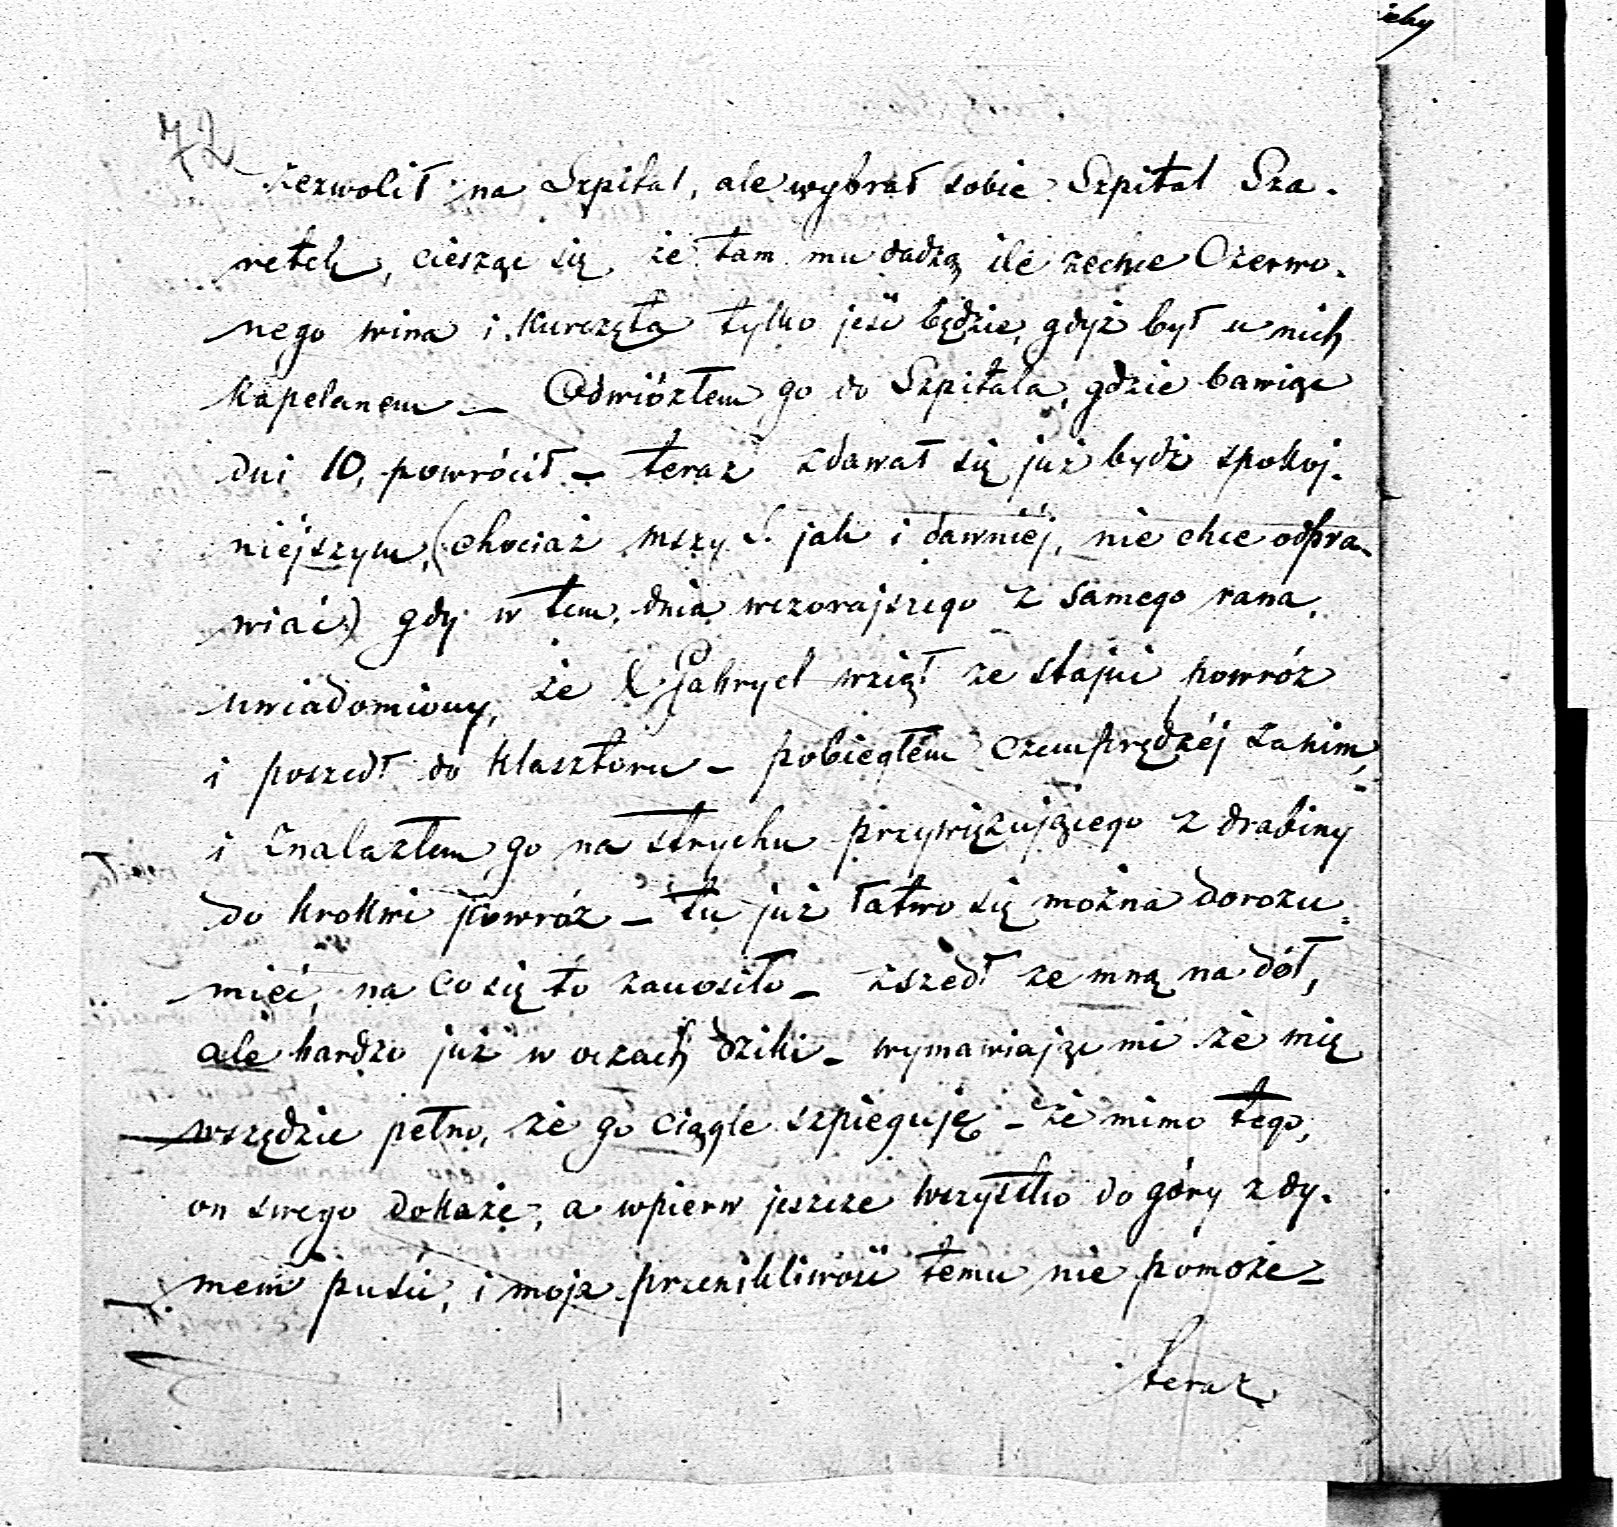 72
zezwolił na Szpital, ale wybrał sobie Szpital Sza-
retek, ciesząc się że tam mu dadzą ile zechce Czerwo-
nego wina i Kurczęta tylko jeść będzie, gdyż był u nich
Kapelanem — Odwiózłem go do Szpitala, gdzie bawiąc
dni 10, powrócił — teraz zdawał się już bydź spokoj-
niéjszym, (chociaż mszy S. jak i dawniéj, nie chce odpra-
wiać) gdy w tem, dnia wczorajszego z samego rana,
uwiadomiony, że X Gabryel wziął ze stajni powróz
i poszedł do klasztoru — pobiegłem czemprędzéj za nim,
i znalazłem go na strychu przywiązującego z drabiny
do krokwi powróz — tu już łatwo się można dorozu-
mieć, na co się to zanosiło — zszedł ze mną na dół,
ale bardzo już w oczach dziki — wymawiając mi że mię
wszędzie pełno, że go ciągle szpieguję — że mimo tego,
on swego dokaże, a wpierw jeszcze wszystko do góry z dy-
mem puści, i moja przenikliwość temu nie pomoże —
teraz